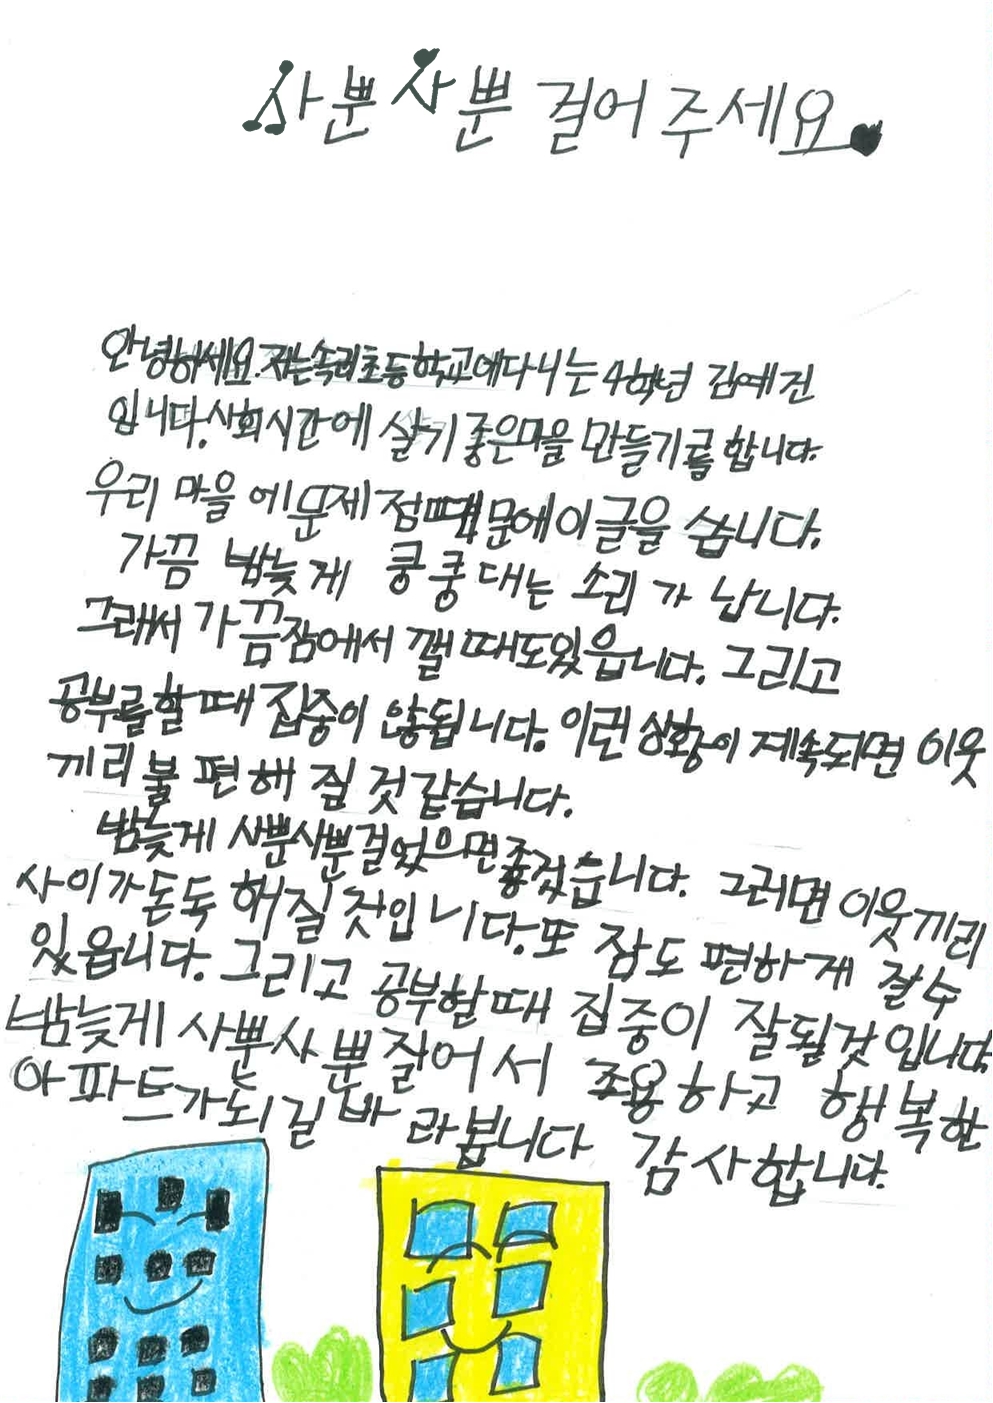 사뿐사뿐 걸어주세요
안녕하세요.저는속리초등학교에다니는 4학년 김예진
입니다.사회시간에 살기좋은마을 만들기를 합니다.
우리 마을 에문제 점때문에이글을 씁니다.
가끔 밤늦게 쿵쿵대는 소리가 납니다.
그래서 가끔잠에서 깰때도있읍니다. 그리고
공부를할때 집중이 않됩니다. 이런상황이 계속되면 이웃
끼리불편해 질것같습니다.
밤늦게 사뿐사뿐걸었으면좋겠습니다. 그러면 이웃끼리
사이가돈독 해질것입니다.또 잠도 편하게 잘수
있읍니다. 그리고 공부할때 집중이 잘될것입니다.
밤늦게 사뿐사뿐걸어서 조용하고 행복한
아파트가되길바라봅니다 감사합니다.